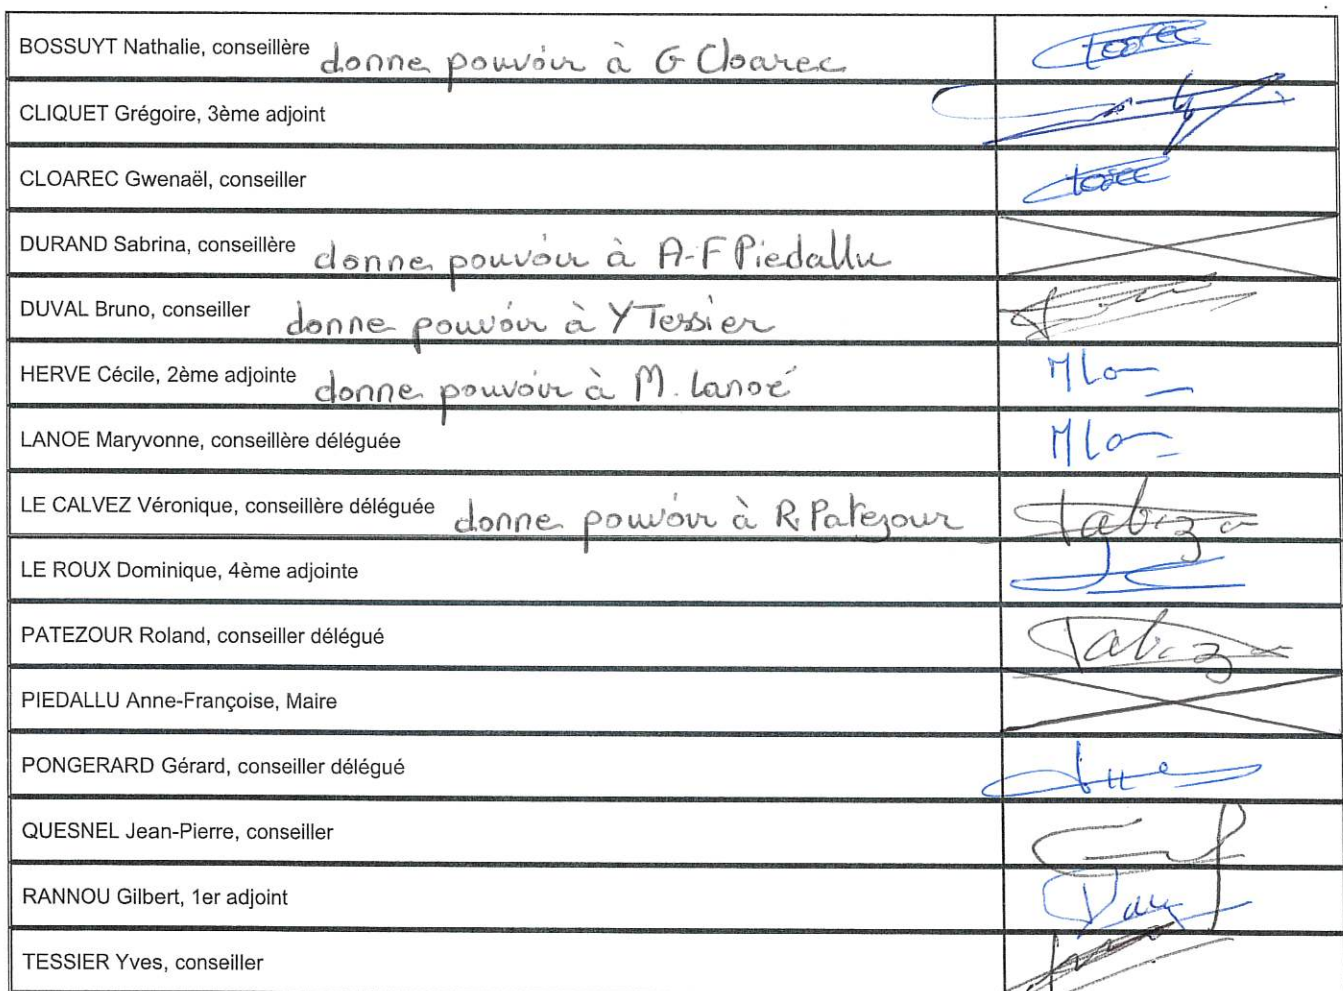 BOSSUYT Nathalie, conseillère donne pouvoir à G Cloarec
CLIQUET Grégoire, 3ème adjoint
CLOAREC Gwenaël, conseiller
DURAND Sabrina, conseillère donne pouvoir à A-F Piedallu
DUVAL Bruno, conseiller donne pouvoir à Y Tessier
HERVE Cécile, 2ème adjointe donne pouvoir à M. Lanoé
LANOE Maryvonne, conseillère déléguée
LE CALVEZ Véronique, conseillère déléguée donne pouvoir à R. Patezour
LE ROUX Dominique, 4ème adjointe
PATEZOUR Roland, conseiller délégué
PIEDALLU Anne-Françoise, Maire
PONGERARD Gérard, conseiller délégué
QUESNEL Jean-Pierre, conseiller
RANNOU Gilbert, 1er adjoint
TESSIER Yves, conseiller